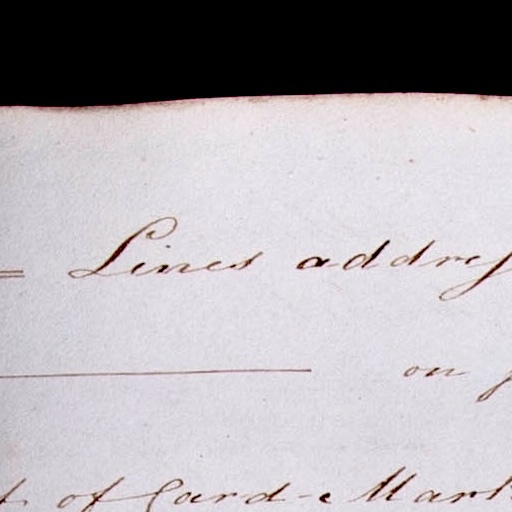 = Lines addres
on
of Card-Mark